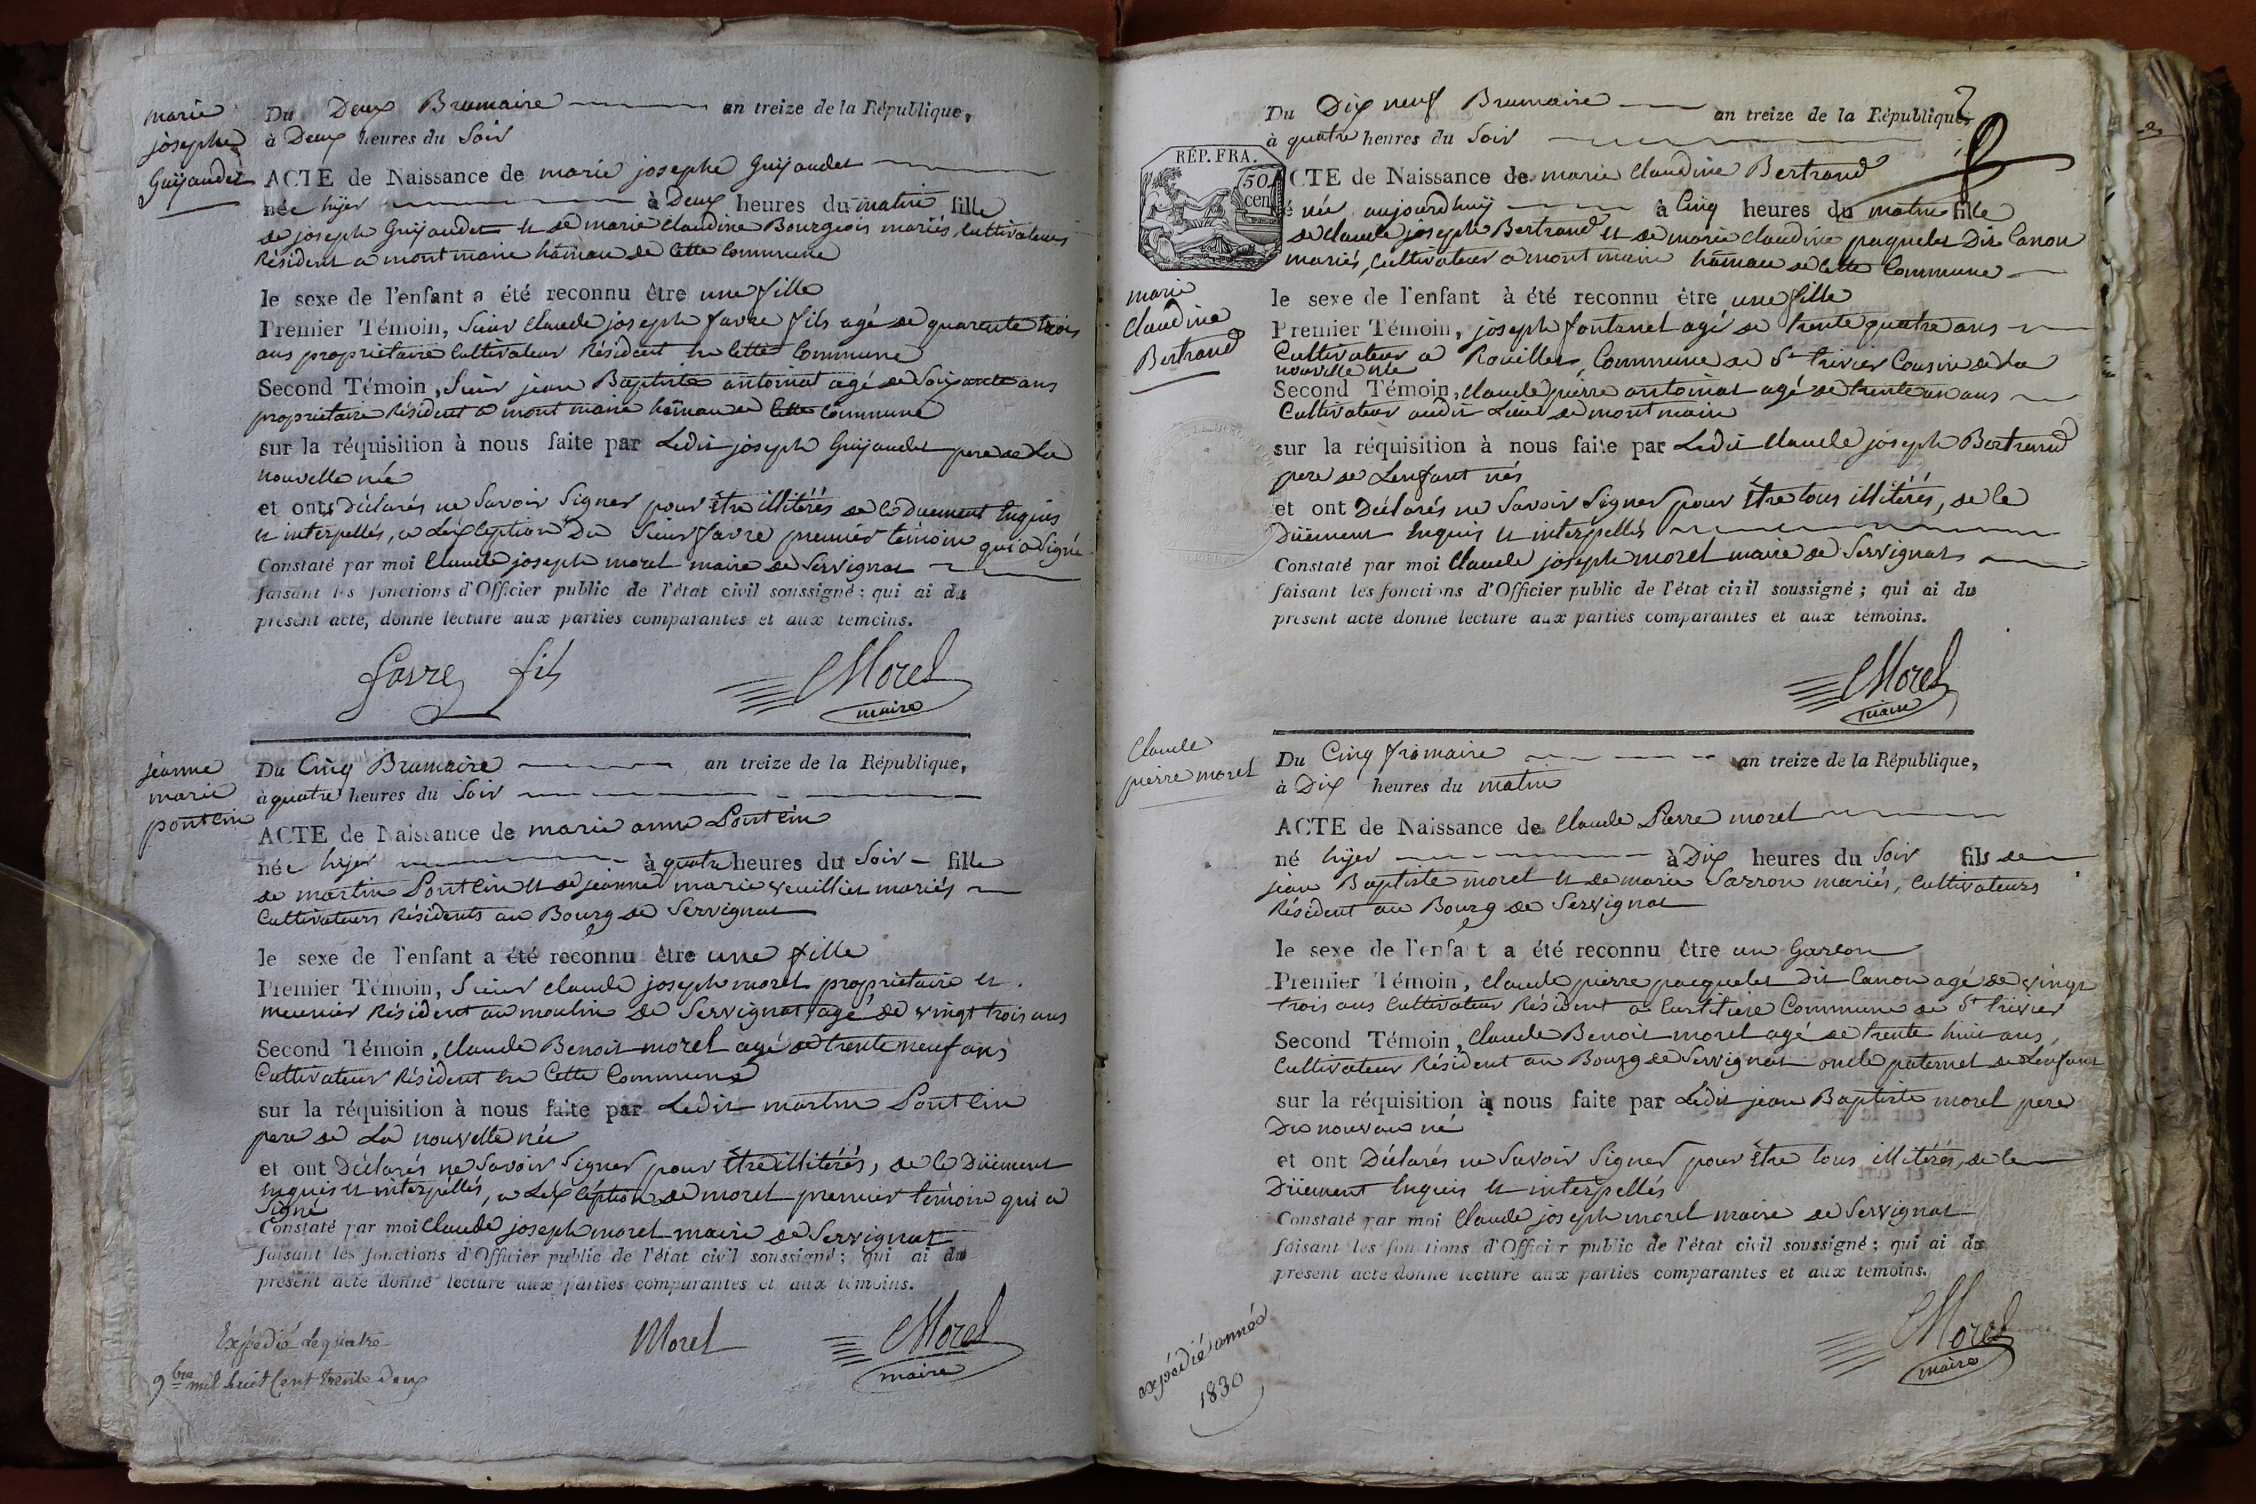 marie
josephe
Guijaudet
Du Deux Brumaire an treize de la République,
à Deux heures du Soir
ACTE de Naissance de marie josephe Guijaudet
née hyer à Deux heures du matin fille
de joseph Guijaudet et de marie claudine Bourgeois mariés, Cultivateurs
Résident a montmain hâmau de Cette Commune
le sexe de l'enfant a été reconnu être une fille
Premier Témoin, Sieur claude joseph favre fils agé de quarente trois
ans proprietaire Cultivateur Résident en Cette Commune
Second Témoin, Sieur jean Baptiste antoinat agé de Soixante ans
proprietaire Résident a montmain hâmau de Cette Commune
sur la réquisition à nous faite par Ledit joseph Guijaudet pere de La
nouvelle née
et ont Déclarés ne Savoir Signer pour Être illitérés de ce Duement Enquis
et interpellés, a L'éxception Du Sieur favre premier témoin qui a Signé
Constaté par moi Claude joseph morel maire de Servignat
faisant les fonctions d'Officier public de l'état civil soussigné: qui ai du
présent acte, donné lecture aux parties comparantes et aux témoins.
favre fils
CMorel
maire
jéanne
marie
pontcin
Du Cinq Brumaire an treize de la République,
à quatre heures du Soir
ACTE de Naissance de marie anne Pontcin
née hyer à quatre heures du Soir fille
de martin Pontcin et de jeanne marie veuillier mariés
Cultivateurs Résidents au Bourg de Servignat
le sexe de l'enfant a été reconnu être une fille
Premier Témoin, Sieur claude joseph morel proprietaire et
meunier Résident au moulin de Servignat, agé de vingt trois ans
Second Témoin, Claude Benoit morel agé de trente neuf ans
Cultivateur Résident en Cette Commune
sur la réquisition à nous faite par Ledit martin Pontcin
pere de La nouvelle née
et ont Déclarés ne Savoir Signer pour Être illitérés, de ce Düement
Enquis et interpéllés, a L'éxcéption de morel premier témoin qui a
Signé
Constaté par moi Claude joseph morel maire de Servignat
faisant les fonctions d'Officier public de l'état civil soussigné; qui ai du
présent acte donné lecture aux parties comparantes et aux témoins.
Expédié le quatre
9bre mil huit Cent trente Deux
Morel
CMorel
maire
2
Du Dix neuf Brumaire an treize de la République,
à quatre heures du Soir
RÉP. FRA.
50
cen
ACTE de Naissance de marie Claudine Bertrand
née aujourdhuij à Cinq heures du matin fille
de claude joseph Bertrand et de marie claudine paquelet Dit Canon
mariés, Cultivateur a montmain hâmau de Cette Commune
marie
Claudine
Bertrand
le sexe de l'enfant à été reconnu être une fille
Premier Témoin, joseph fontanel agé de trente quatre ans
Cultivateur a Rouilles, Commune de St trivier Cousin de La
nouvelle née
Second Témoin, claude pierre antoinat agé de trente un ans
Cultivateur audit Lieu de montmain
sur la réquisition à nous faite par Ledit claude joseph Bertrand
pere de L'enfant née
et ont Déclarés ne Savoir Signer pour Être tous illitérés, de ce
Düement Enquis et interpellés
Constaté par moi Claude joseph morel maire de Servignat
faisant les fonctions d'Officier public de l'état civil soussigné; qui ai du
présent acte donné lecture aux parties comparantes et aux témoins.
CMorel
maire
Claude
pierre morel
Du Cinq frimaire an treize de la République,
à Dix heures du matin
ACTE de Naissance de Claude Pierre morel
né hyer à Dix heures du Soir fils de
jean Baptiste morel et de marie Sarron mariés, Cultivateurs
Résident au Bourg de Servignat
le sexe de l'enfant a été reconnu être un Garcon
Premier Témoin, claude pierre paquelet dit Canon agé de vingt
trois ans Cultivateur Résident a Curtitiere Commune de St trivier
Second Témoin, Claude Benoit morel agé de trente huit ans,
Cultivateur Résident au Bourg de Servignat oncle paternel de L'enfant
sur la réquisition à nous faite par Ledit jean Baptiste morel pere
Du nouveau né
et ont Déclarés ne Savoir Signer pour Être tous illitérés, de ce
Düement Enquis et interpellés
Constaté par moi Claude joseph morel maire de Servignat
faisant les fonctions d'Officier public de l'état civil soussigné; qui ai du
présent acte donné lecture aux parties comparantes et aux témoins.
expédié année
1830
CMorel
maire